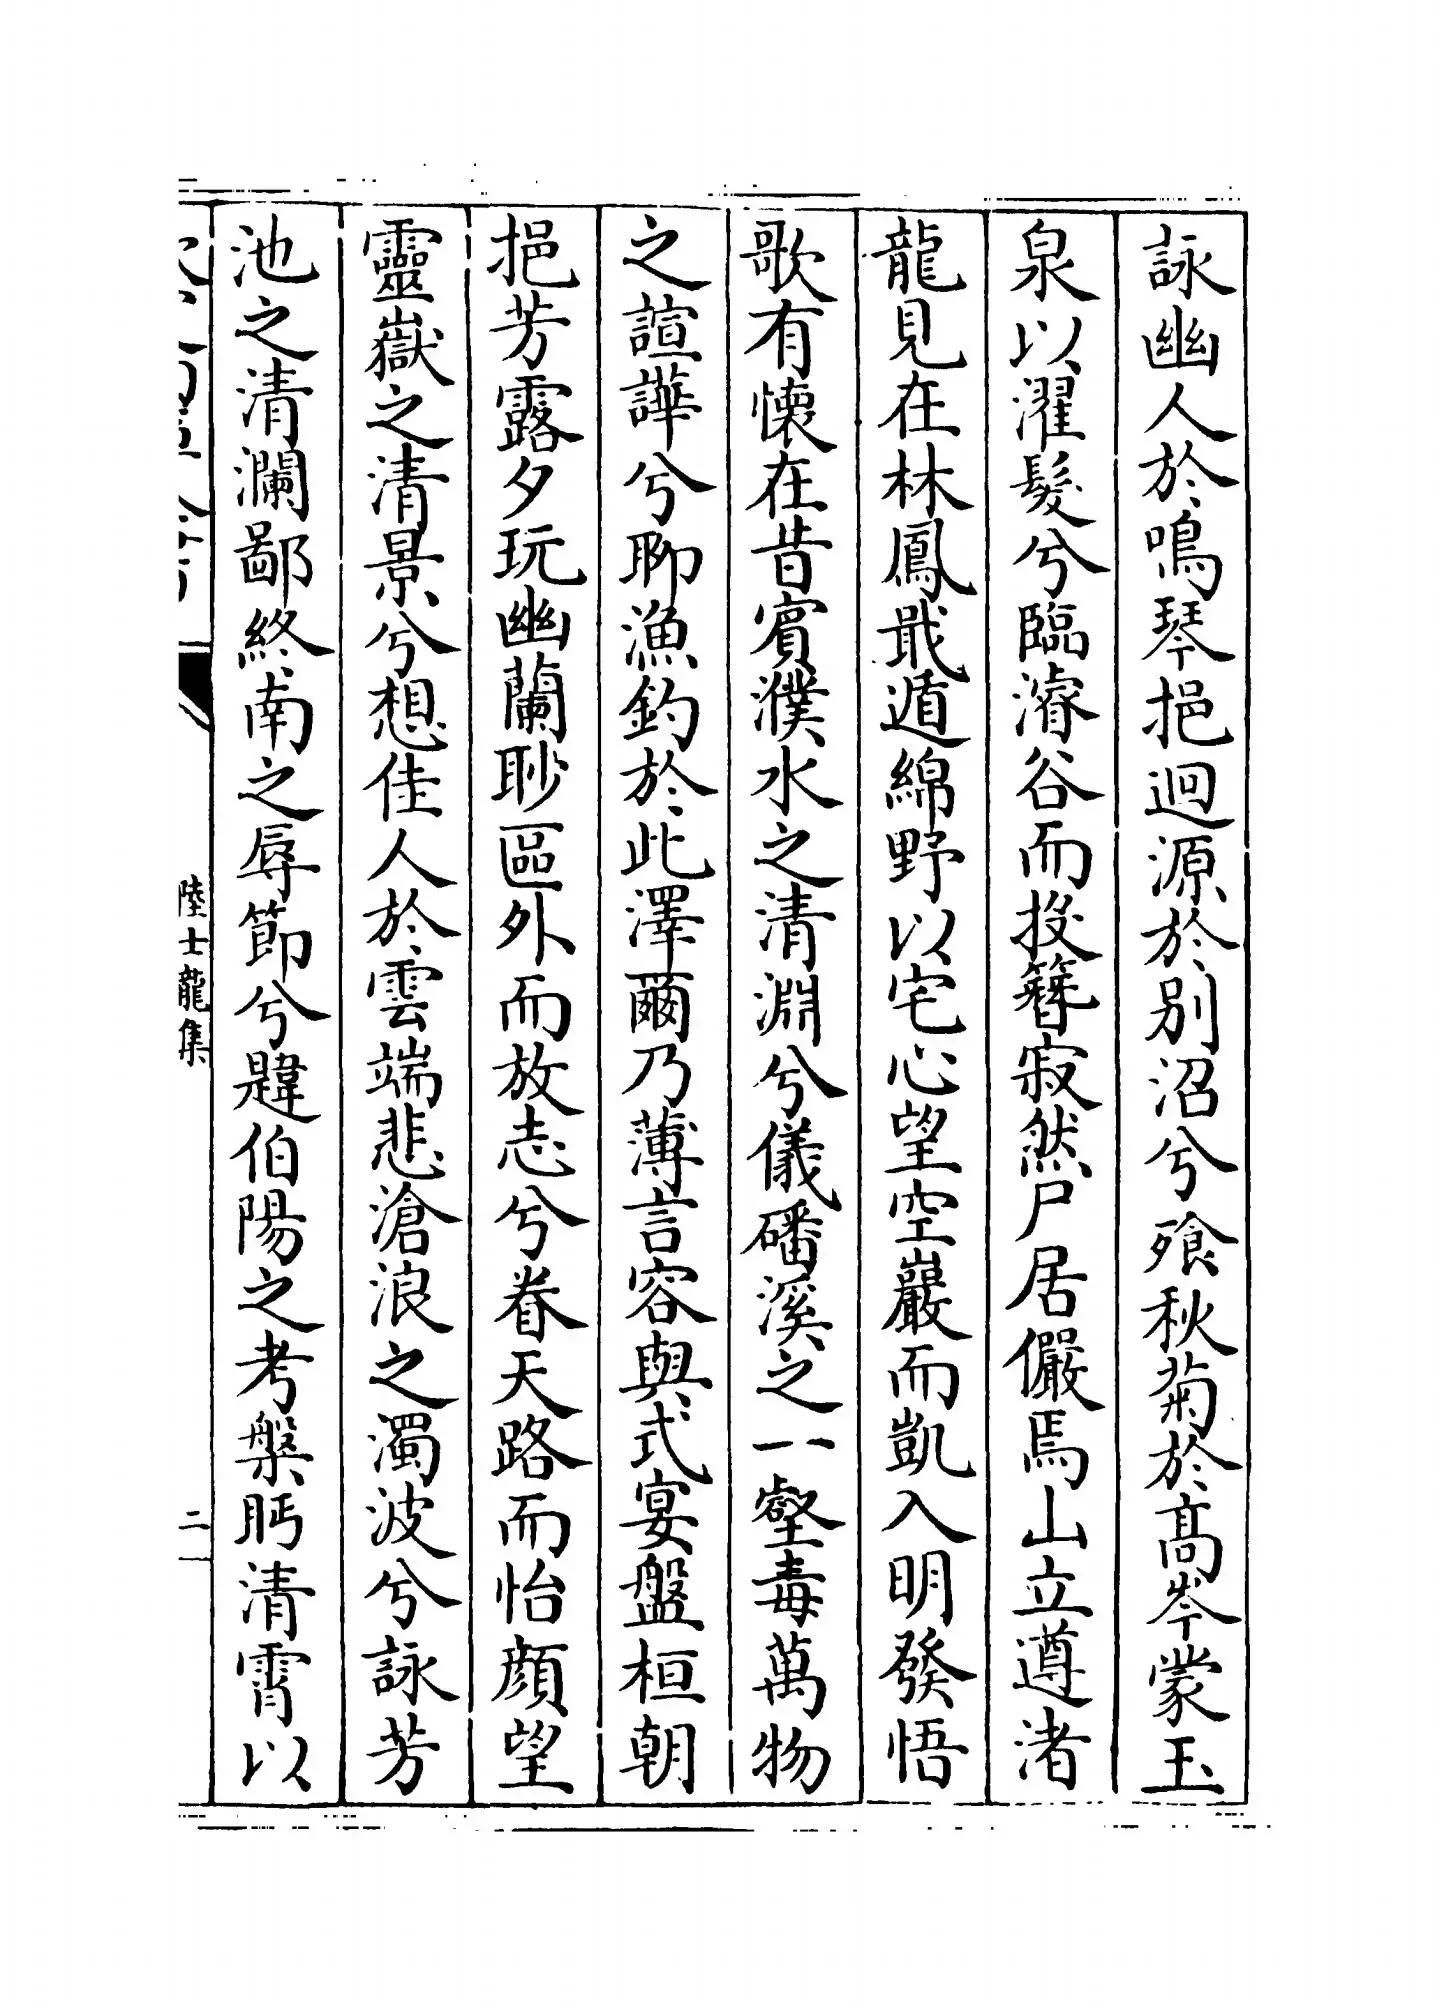 詠幽人於鳴琴挹迴源於別沼兮飱秋菊於髙岑蒙玉
泉以濯髮兮臨濬谷而投簪寂然尸居儼焉山立遵渚
龍見在林鳳戢遁綿野以宅心望空巖而凱入明發悟
歌有懐在昔賓濮水之清淵兮儀磻溪之一壑毒萬物
之諠譁兮聊漁釣於此澤爾乃薄言容與式宴盤桓朝
挹芳露夕玩幽蘭眇區外而放志兮眷天路而怡顔望
靈嶽之清景兮想佳人於雲端悲滄浪之濁波兮詠芳
池之清瀾鄙終南之辱節兮韙伯陽之考槃眄清霄以
陸士龍集
二